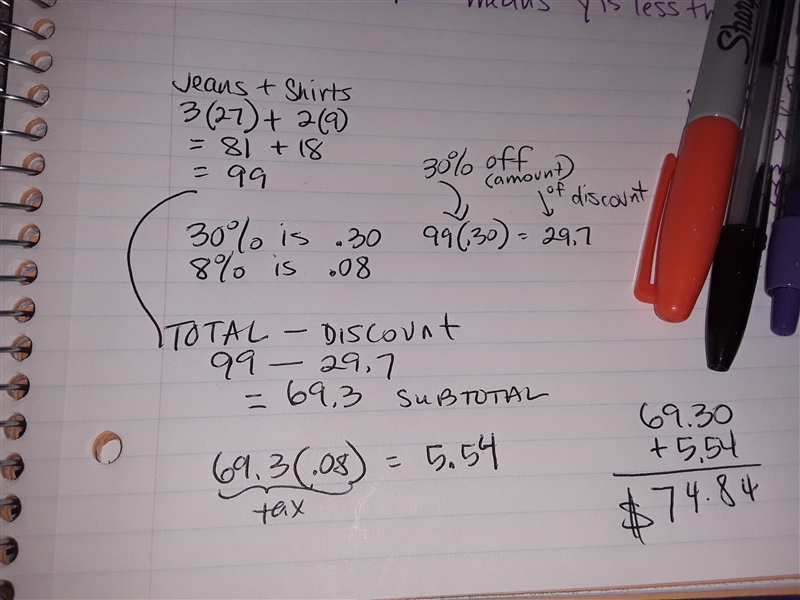 means y is less th
Sharp
Jeans + Shirts
3(27) + 2(9)
= 81 + 18
= 99
30% off
(amount)
of discount
30% is .30
99(.30) = 29.7
8% is .08
TOTAL – DISCOUNT
99 – 29.7
= 69.3 SUBTOTAL
69.3(.08) = 5.54
tax
69.30
+ 5.54
$74.84